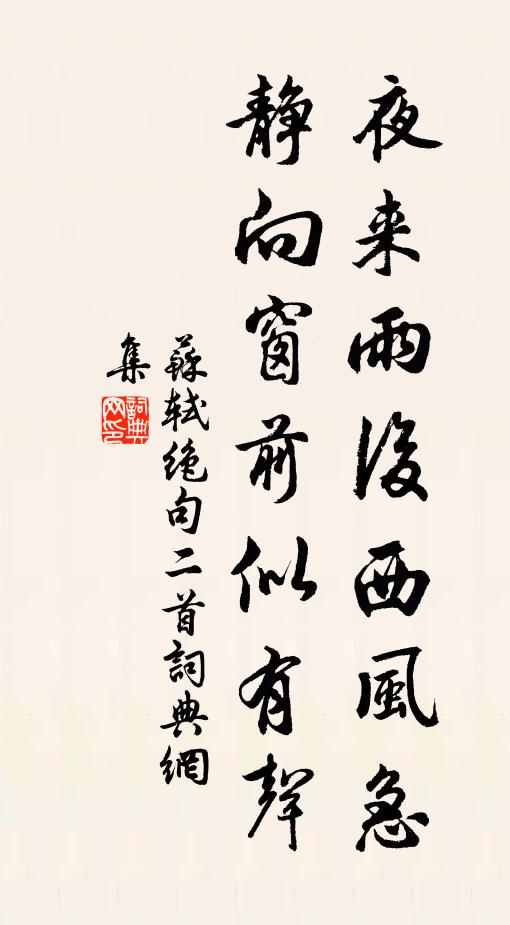 夜来雨後西風急
静向窗前似有聲
蘇軾絶句二首詞典網
集
詞典網印